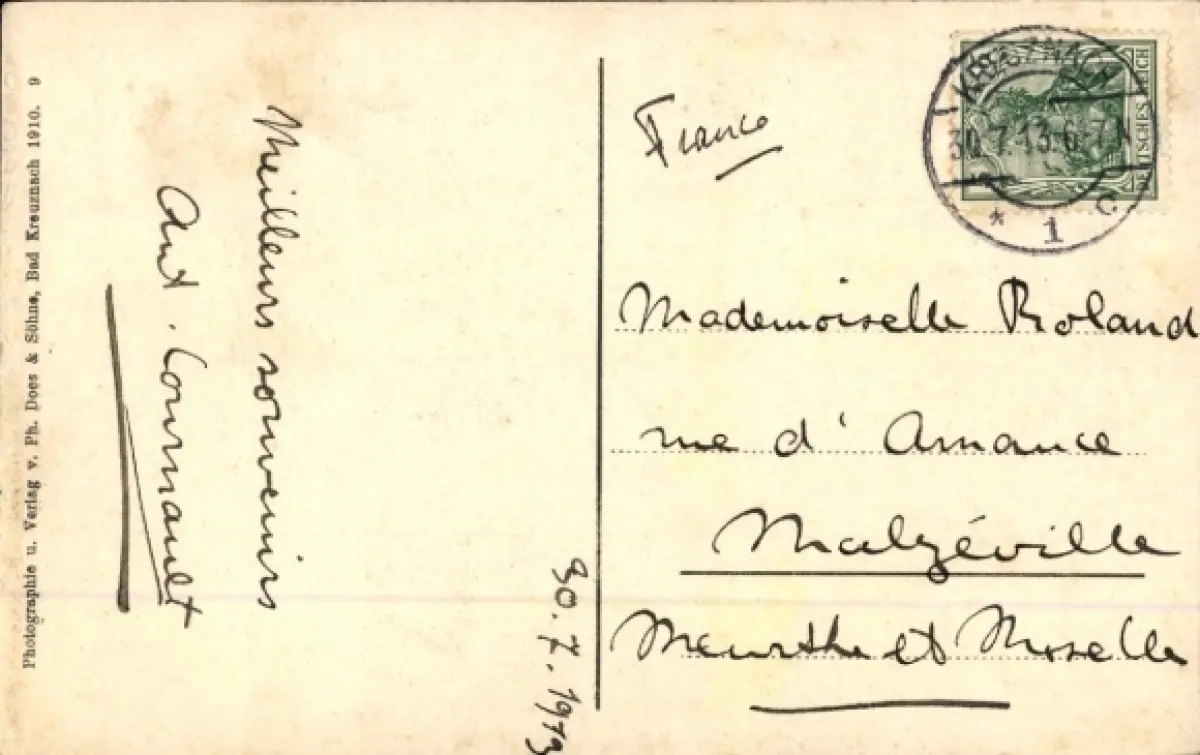 Photographie u. Verlag v. Ph. Does & Söhne, Bad Kreuznach 1910. 9
Meilleurs souvenirs
30.7.1913
France
KREUZNACH
30.7.13.6-7
* 1 c
DEUTSCHES REICH
Mademoiselle Roland
rue d'Amance
Malzéville
Meurthe et Moselle